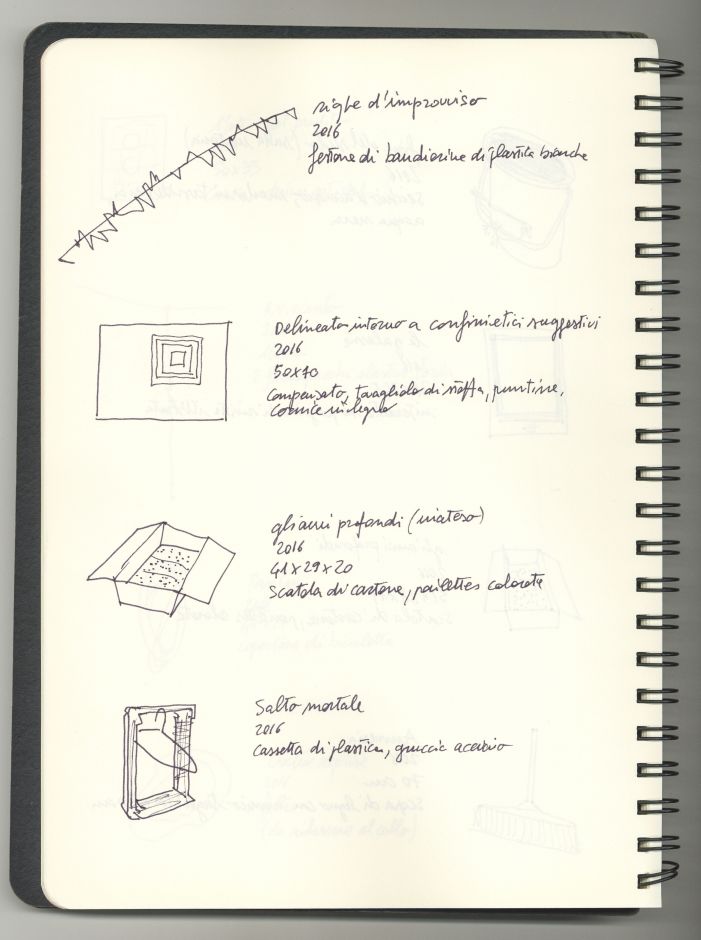 righe d'improvviso
2016
festone di bandierine di plastica bianche
Delineato intorno a confini etici suggestivi
2016
50x70
compensato, tovagliolo di stoffa, puntine,
cornice in legno
gli anni profondi (inatteso)
2016
41x29x20
Scatola di cartone, paillettes colorate
Salto mortale
2016
cassetta di plastica, gruccia acciaio